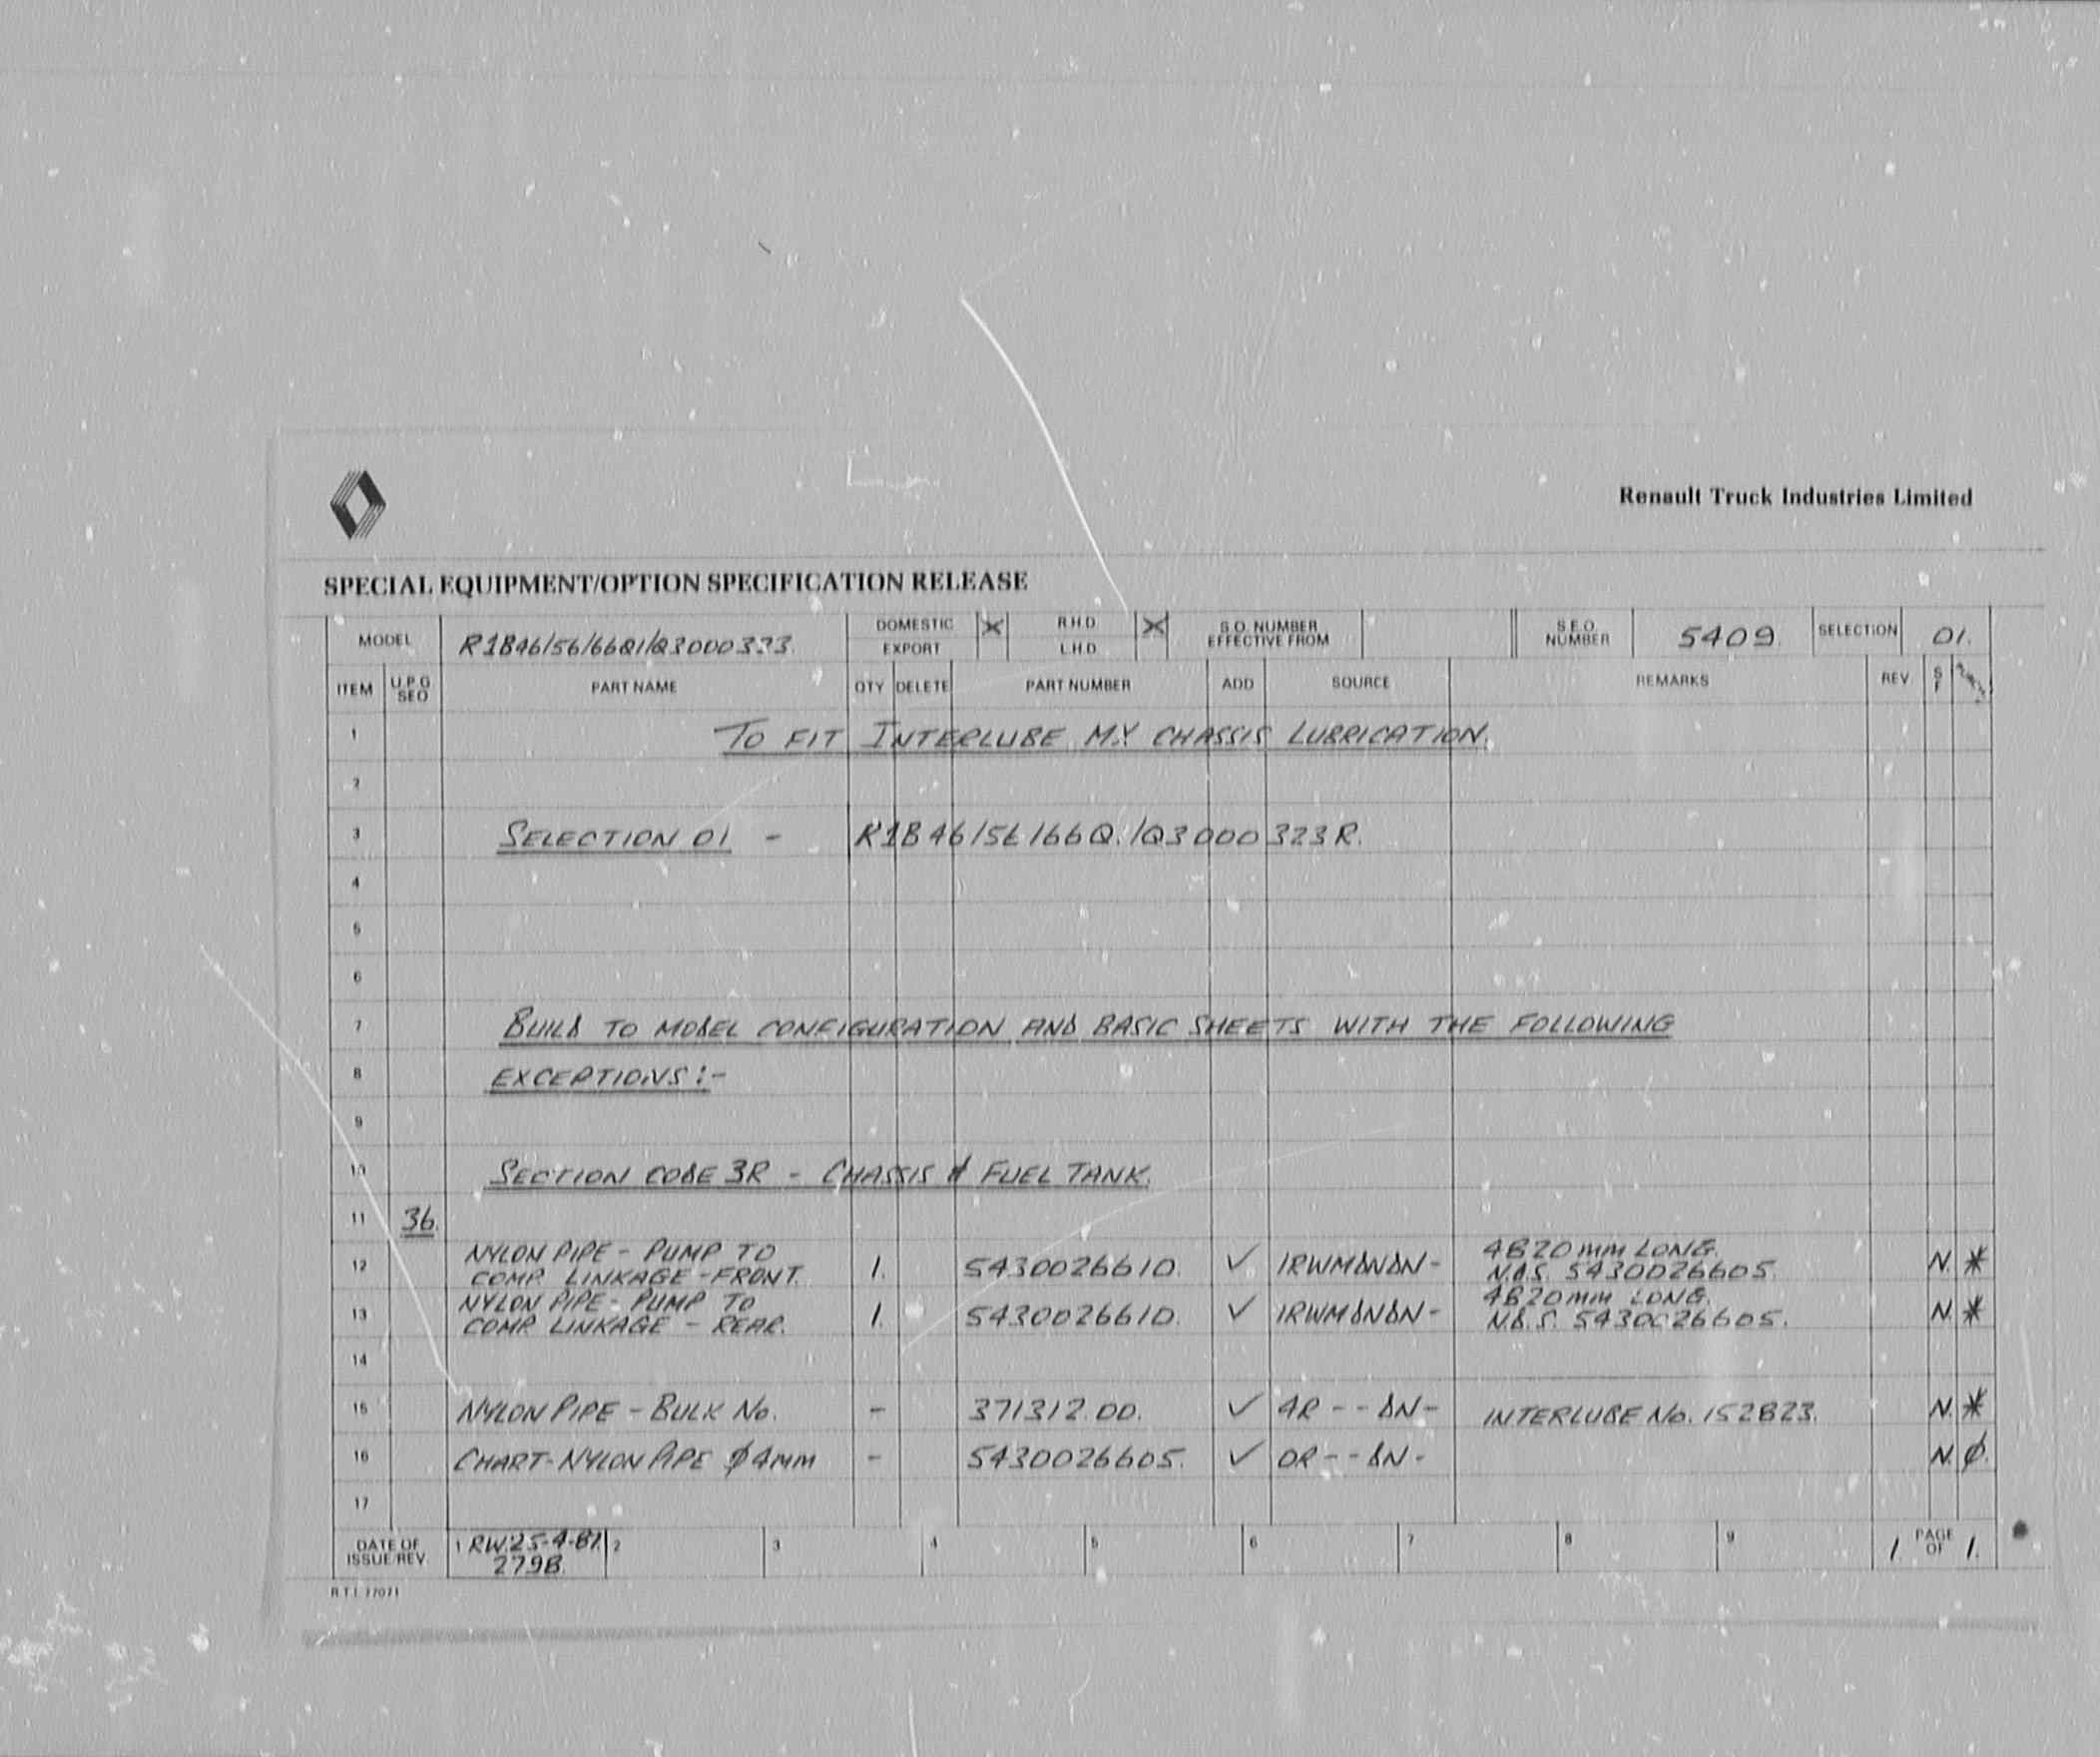 Renault Truck Industries Limited
SPECIAL EQUIPMENT/OPTION SPECIFICATION RELEASE
MODEL R1B46/56/66Q1/Q3000333. DOMESTIC X R.H.D. X S.O. NUMBER S.E.O. 5409. SELECTION 01.
EXPORT L.H.D. EFFECTIVE FROM NUMBER
ITEM U.P.G SEQ PART NAME QTY DELETE PART NUMBER ADD SOURCE REMARKS REV S F
1 TO FIT INTERLUBE MX CHASSIS LUBRICATION.
2
3 SELECTION 01 - R1B46/56/66Q./Q3000323R.
4
5
6
7 BUILD TO MODEL CONFIGURATION AND BASIC SHEETS WITH THE FOLLOWING
8 EXCEPTIONS:-
9
10 SECTION CODE 3R - CHASSIS & FUEL TANK.
11 36.
12 NYLON PIPE - PUMP TO 1. 5430026610. ✓ 1RWMDNDN- 4820mm LONG. N. *
COMP. LINKAGE - FRONT. N.D.S. 5430026605.
13 NYLON PIPE - PUMP TO 1. 5430026610. ✓ 1RWMDNDN- 4820mm LONG. N. *
COMP. LINKAGE - REAR. N.D.S. 5430026605.
14
15 NYLON PIPE - BULK No. - 371312.00. ✓ 4R--DN- INTERLUBE No. 152823. N. *
16 CHART-NYLON PIPE ϕ4mm - 5430026605. ✓ 0R--DN- N. ϕ.
17
DATE OF 1 RW.25-4-87. 2 3 4 5 6 7 8 9 1 PAGE 1.
ISSUE/REV. 2798. OF
R.T.I. 77071